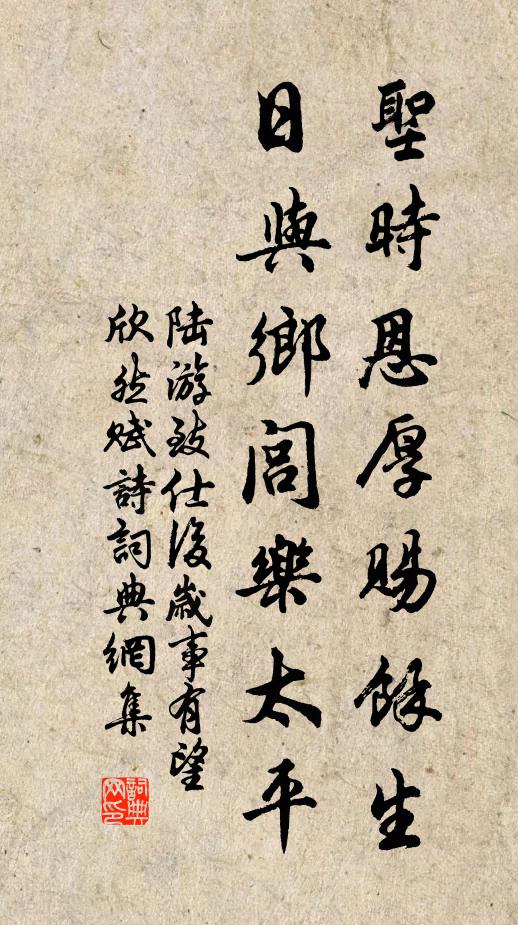 聖時恩厚賜餘生
日與鄉閭樂太平
陸游致仕後歲事有望
欣然賦詩詞典網集
詞典
网印